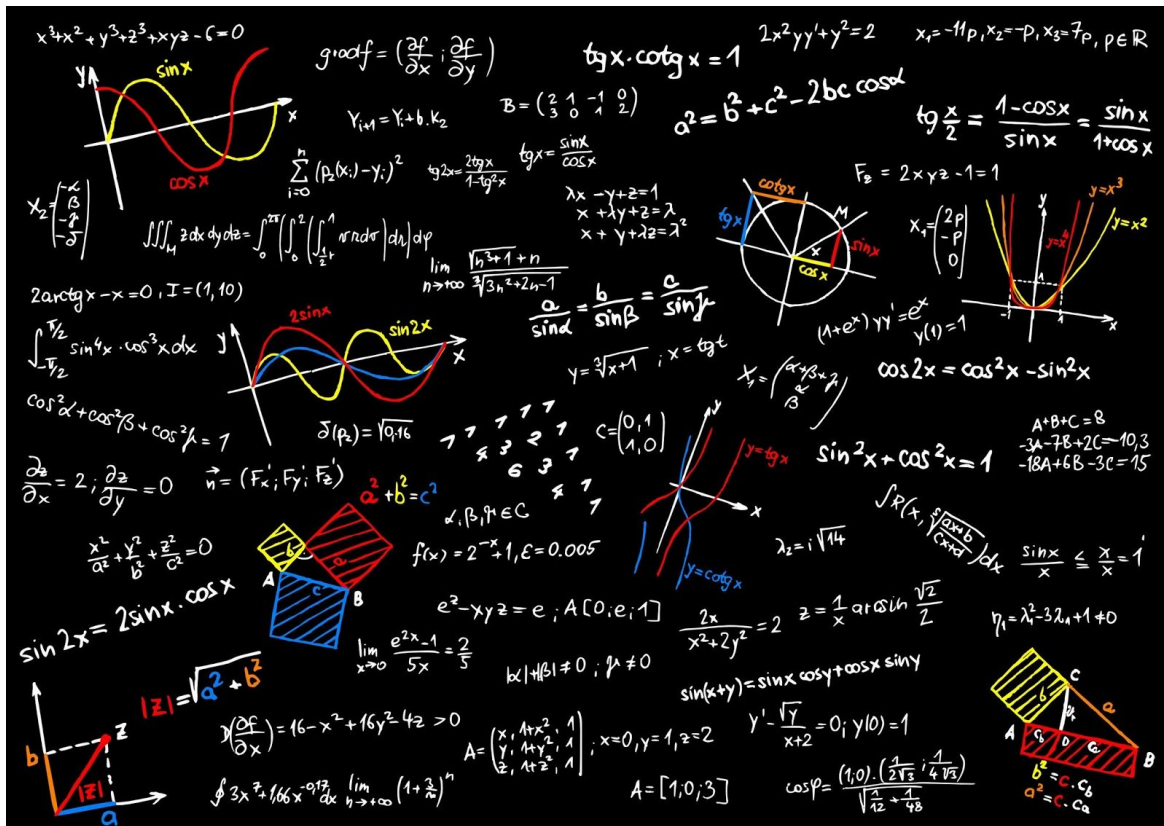 x³+x²+y³+z³+xyz-6=0
gradf = (∂f/∂x ; ∂f/∂y)
tgx·cotgx = 1
2x²yy'+y²=2
x₁=-11p, x₂=-p, x₃=7p, p∈ℝ
y
sinx
x
cosx
Y_{i+1} = Y_i + b·k₂
B = (2 1 -1 0
3 0 1 2)
a² = b²+c²-2bc cosα
tg x/2 = (1-cosx)/sinx = sinx/(1+cosx)
∑_{i=0}^{n} (p₂(x_i)-y_i)²
tg2x = 2tgx/(1-tg²x)
tgx = sinx/cosx
F_z = 2xyz-1=1
X₂=(-α
β
-γ
-δ)
∭_M z dx dy dz =
λx -y+z=1
x +λy+z=λ
x + y+λz=λ²
cotgx
tgx
M
x
sinx
cosx
X₁=(2p
-P
0)
y
y=x³
y=x²
y=x⁴
1
-1
1
x
lim n→+∞
2arctgx-x=0, I=(1,10)
a/sinα = b/sinβ = c/sinγ
(1+eˣ)yy'=eˣ
y(1)=1
∫_{-π/2}^{π/2} sin⁴x·cos³x dx
y
2sinx
sin2x
x
y=∛(x+1) ; x=tgt
X₁=(α+β+γ
α
β)
cos2x = cos²x-sin²x
cos²α+cos²β+cos²γ=1
δ(p₂)=√0,16
1 1 1 1 1
4 3 2 1
6 3 1
4 1
1
C=(0,1
1,0)
y
y=tgx
x
y=cotgx
sin²x+cos²x=1
A+B+C=8
-3A-7B+2C=-10,3
-18A+6B-3C=15
∂z/∂x = 2 ; ∂z/∂y = 0
n⃗ = (F'x ; F'y ; F'z)
a²+b²=c²
b
a
A
c
B
α,β,γ∈C
∫R(x, ⁵√((ax+b)/(cx+d)))dx
x²/a²+y²/b²+z²/c²=0
f(x)=2⁻ˣ+1, ε=0.005
λ₂=i√14
sinx/x ≤ x/x = 1
sin2x = 2sinx·cosx
e²-xyz=e ; A[0;e;1]
2x/(x²+2y²)=2
z = 1/x arcsin √2/2
η₁=λ₁²-3λ₁+1≠0
lim x→0 (e²ˣ-1)/5x = 2/5
|α|+|β|≠0 ; γ≠0
sin(x+y)=sinx cosy+cosx siny
b
C
a
A
c_b
D
c_a
B
b²=c·c_b
a²=c·c_a
|z|=√(a²+b²)
b
z
|z|
a
(∂f/∂x)=16-x²+16y²-4z>0
A=(x, 1+x², 1
y, 1+y², 1
z, 1+z², 1) ; x=0, y=1, z=2
y'-√y/(x+2)=0; y(0)=1
lim n→+∞ (1+3/n)ⁿ
A=[1;0;3]
cosφ=((1;0)·(1/(2√3) ; 1/(4√3)))/√(1/12+1/48)